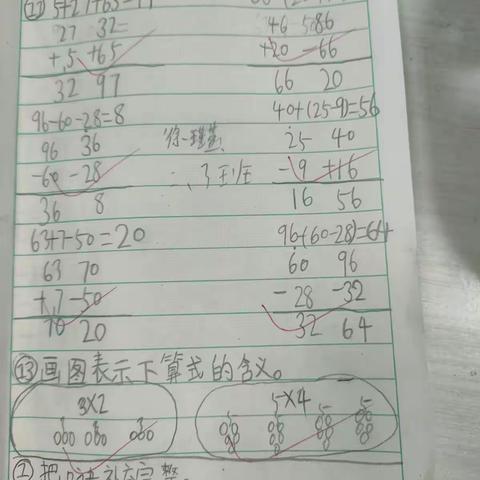 5+27+65=
27 32= 46 586
+ 5 +65 +20 -66
32 97 66 20
96-60-28=8 40+(25-9)=56
96 36 25 40
-60 -28 -9 +16
36 8 16 56
63+7-50=20 96-(60-28)=64
63 70 60 96
+ 7 -50 -28 -32
70 20 32 64
⑬画图表示下算式的含义。
3×2 5×4